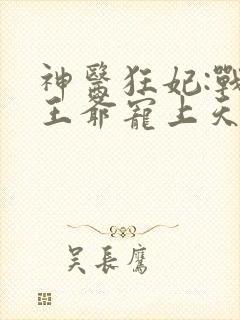 神醫狂妃:戰
王爺寵上天
吳長鷹